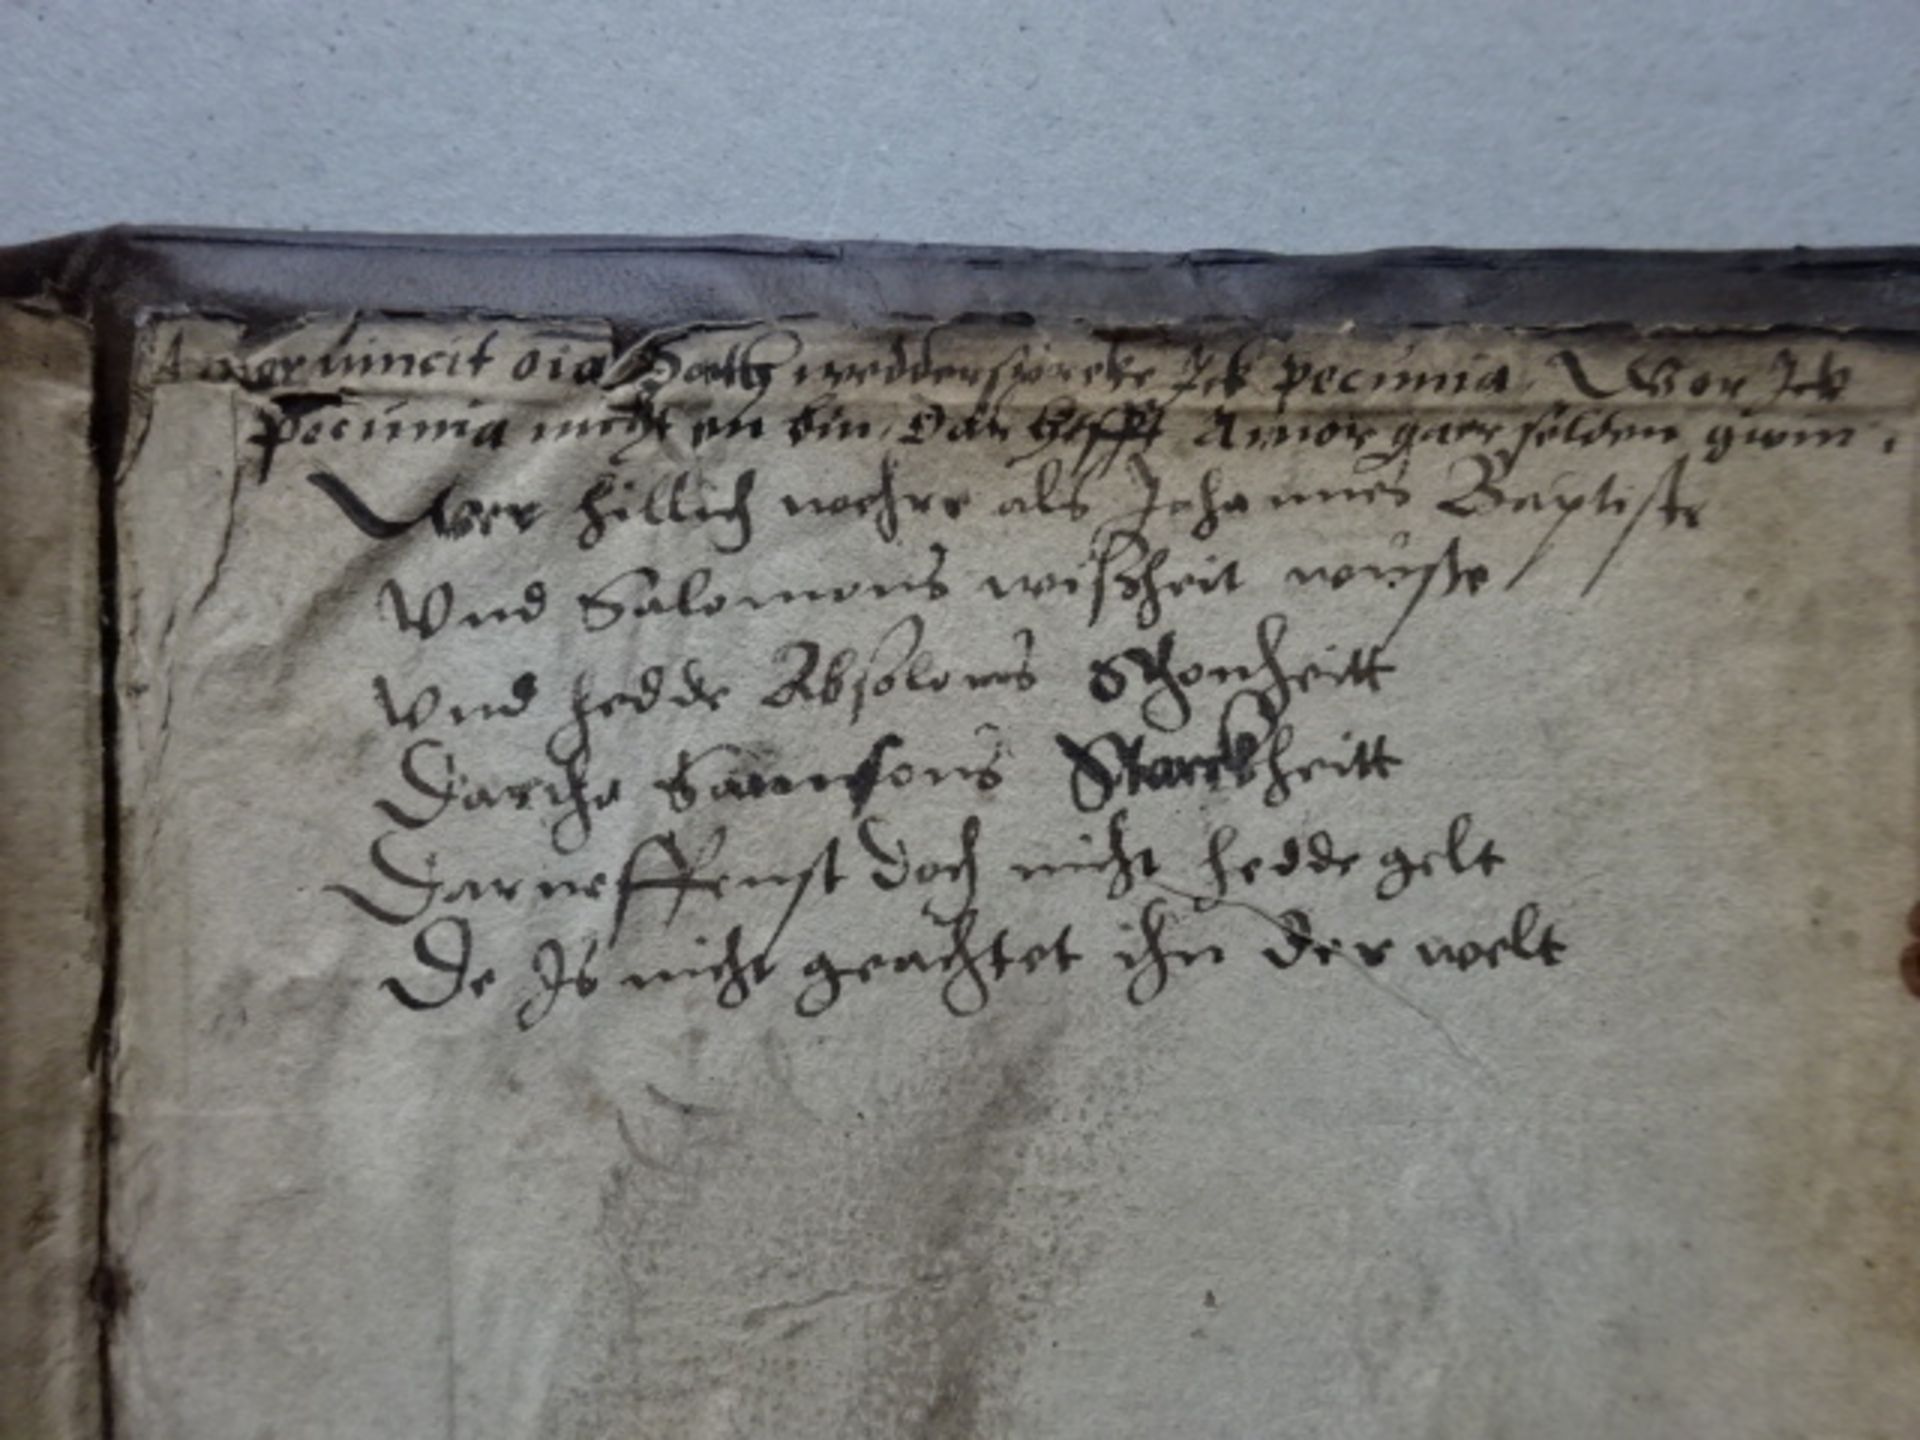 Amor vincit oia Datt wedderspreke Ick pecunia. Wor Ick
Pecunia nicht en bin, Dar hefft Amor gaer selden gwin.
Wer hillich wehre als Johannes Baptiste
Vnd Salomons wißheit wuste
Vnd hedde Absolons Schonheitt
Darche Samsons Starckheitt
Darneffenst doch nicht hedde gelt
De Is nicht geachtet ihn der welt